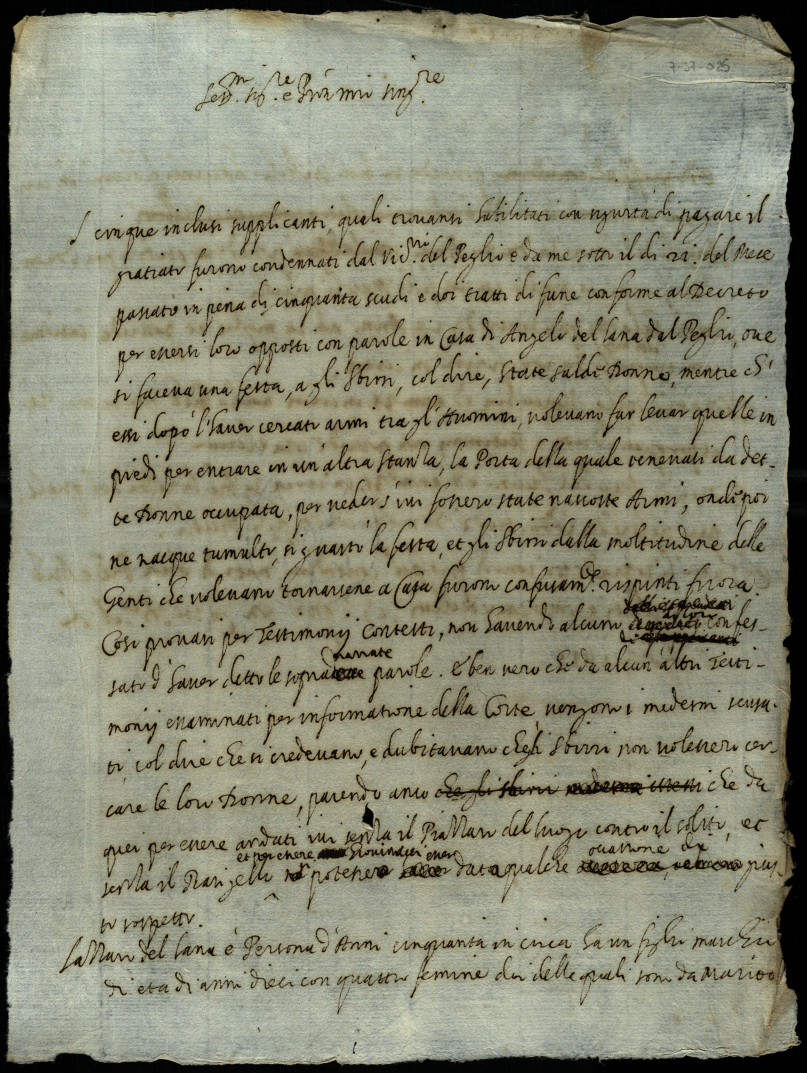 7-37-025
Ser.mo Sig.re e P'ron mio sing.re
I cinque inclusi supplicanti, quali trovansi habilitati con sigurtà di pagare il
gratiato furono condennati dal Vic.rio del Peglio e da me sotto il di 21. del Mese
passato in pena di cinquanta scudi e doi tratti di fune conforme al Decreto
per essersi loro opposti con parole in Casa di Angelo del Lana dal Peglio, ove
si faceva una festa, a gli Sbirri, col dire, State salde Donne, mentre ch'
essi dopò l'haver cercato armi tra gl'Huomini, volevano far levar quelle in
piedi per entrare in un'altra stanza, la Porta della quale venevasi da det-
te Donne occupata, per veder s'ivi fossero state nascoste Armi, onde poi
ne nacque tumulto, si guastò la festa, et gli Sbirri dalla moltitudine delle
Genti che volevano tornarsene a Casa furono confusam.te rispinti fuora.
Così provasi per Testimonij contesti, non havendo alcuno di loro confes-
sato d'haver detto le sopra narrate parole. È ben vero che da alcun'altri Testi-
monij essaminati per informatione della Corte vengono i medemi scusa-
ti, col dire che si credevano, e dubitavano che gli Sbirri non volessero cer-
care le loro Donne, parendo anco che gli sbirri che da
quei per essere andati ivi senza il Piazzaro del luogo contro il solito, et
senza il Barigello et per essere Giovinazzi potesse esser data qualche occasione di gius-
to sospetto.
Lazzaro del Lana è Persona d'Anni cinquanta in circa ha un figlio maschio
di età di anni dieci con quattro femine doi delle quali sono da Marito